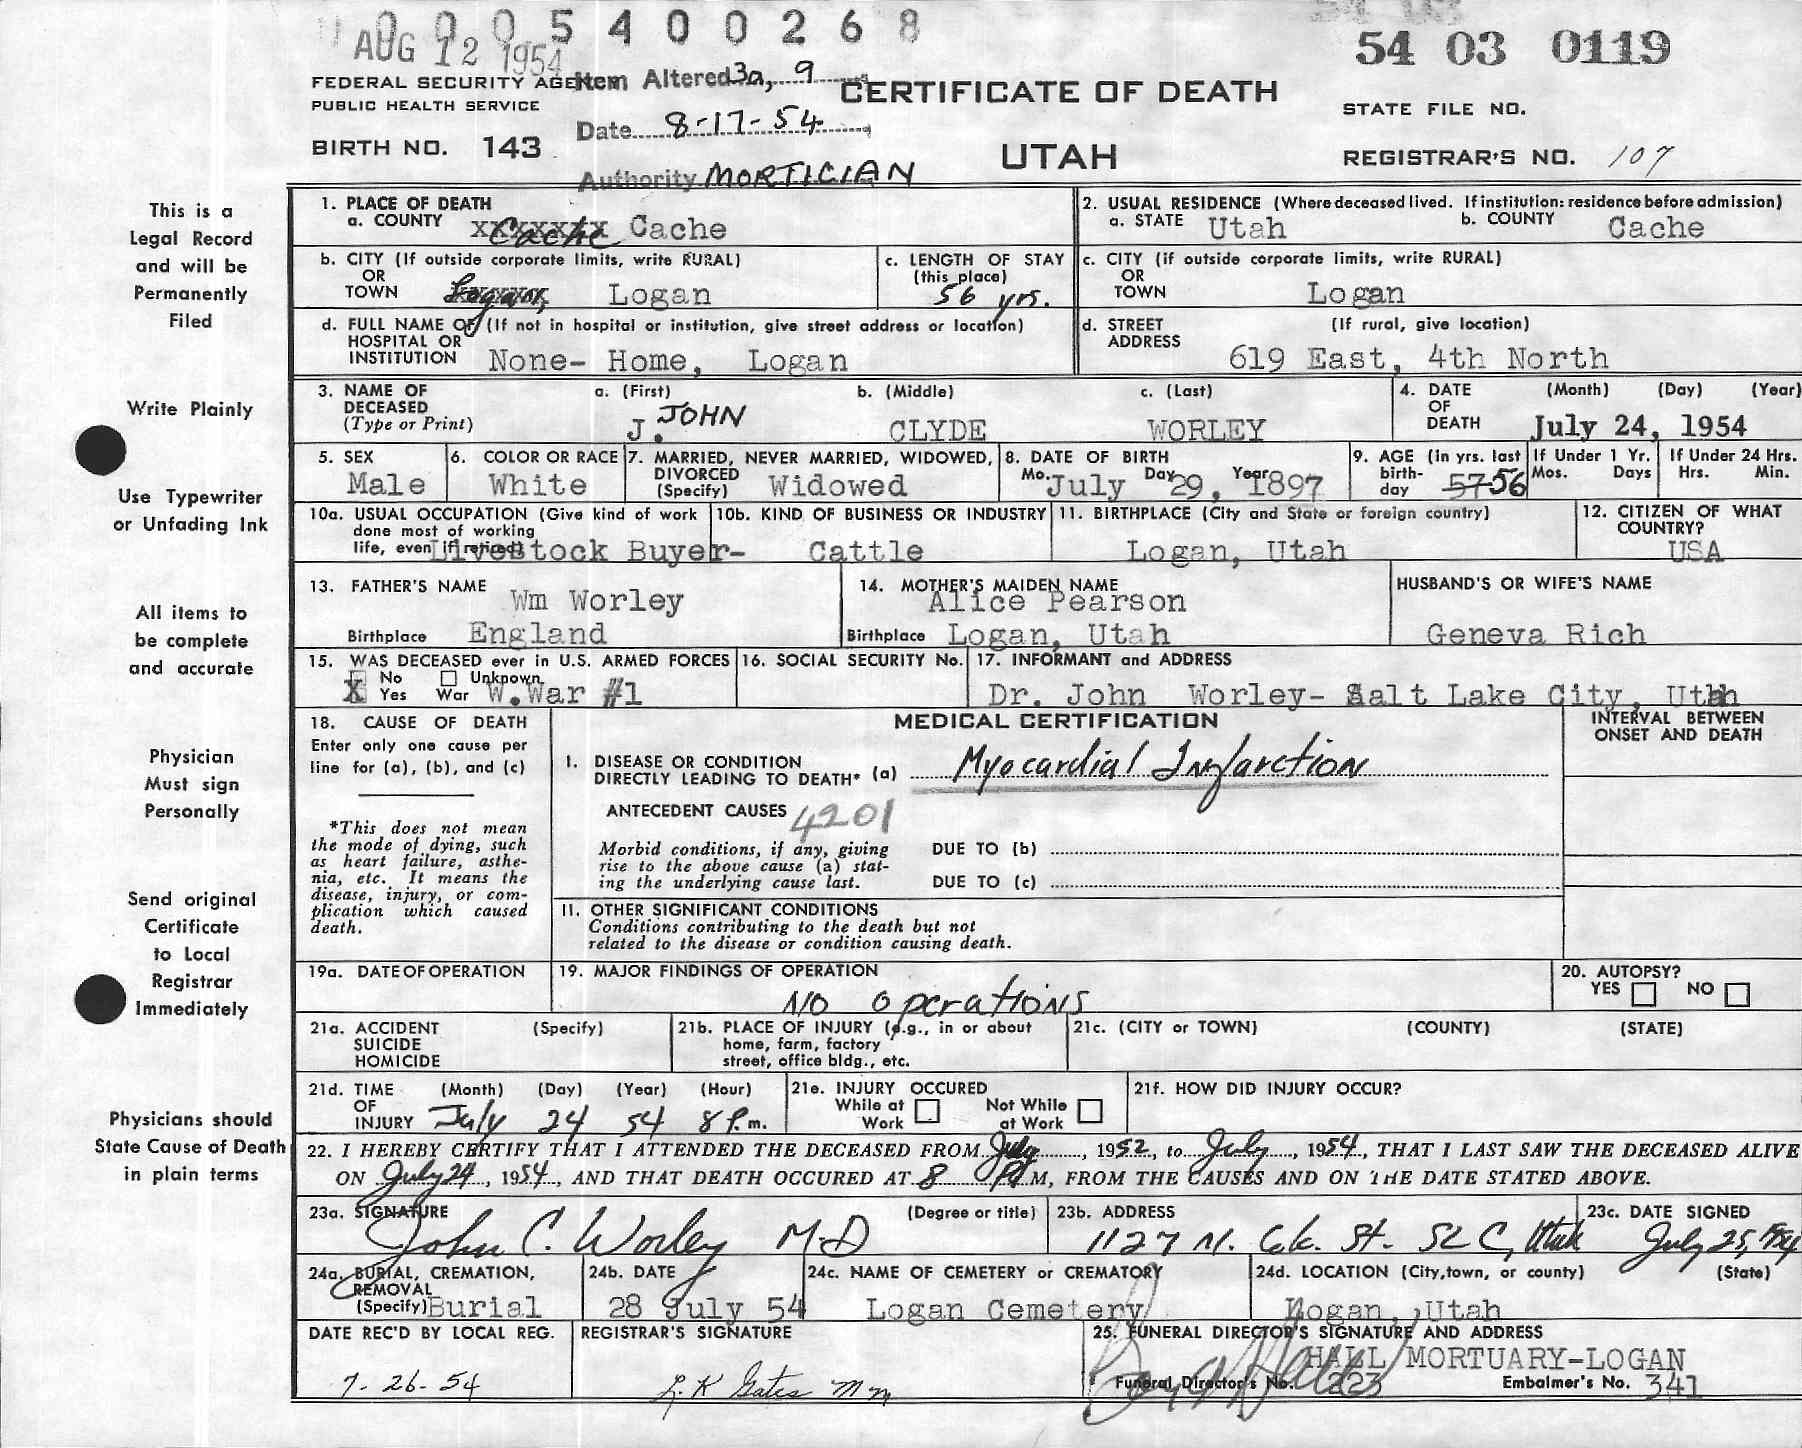 0 0 0 5 4 0 0 2 6 8
AUG 12 1954
54 03 0119
FEDERAL SECURITY AGENCY
PUBLIC HEALTH SERVICE
BIRTH NO. 143
Item Altered 3a, 9
Date 8-17-54
Authority MORTICIAN
CERTIFICATE OF DEATH
UTAH
STATE FILE NO.
REGISTRAR'S NO. 107
This is a
Legal Record
and will be
Permanently
Filed
Write Plainly
Use Typewriter
or Unfading Ink
All items to
be complete
and accurate
Physician
Must sign
Personally
Send original
Certificate
to Local
Registrar
Immediately
Physicians should
State Cause of Death
in plain terms
1. PLACE OF DEATH
a. COUNTY xxxxxxx Cache Cache
2. USUAL RESIDENCE (Where deceased lived. If institution: residence before admission)
a. STATE Utah b. COUNTY Cache
b. CITY (If outside corporate limits, write RURAL)
OR
TOWN Logan, Logan
c. LENGTH OF STAY
(this place)
56 yrs.
c. CITY (if outside corporate limits, write RURAL)
OR
TOWN Logan
d. FULL NAME OF (If not in hospital or institution, give street address or location)
HOSPITAL OR
INSTITUTION None- Home, Logan
d. STREET (If rural, give location)
ADDRESS
619 East, 4th North
3. NAME OF
DECEASED
(Type or Print)
a. (First) b. (Middle) c. (Last)
J. JOHN CLYDE WORLEY
4. DATE (Month) (Day) (Year)
OF
DEATH July 24, 1954
5. SEX
Male
6. COLOR OR RACE
White
7. MARRIED, NEVER MARRIED, WIDOWED,
DIVORCED
(Specify) Widowed
8. DATE OF BIRTH
Mo. July Day 29, Year 1897
9. AGE (In yrs. last
birth-
day 57 56
If Under 1 Yr.
Mos. Days
If Under 24 Hrs.
Hrs. Min.
10a. USUAL OCCUPATION (Give kind of work
done most of working
life, even if retired) Livestock Buyer-
10b. KIND OF BUSINESS OR INDUSTRY
Cattle
11. BIRTHPLACE (City and State or foreign country)
Logan, Utah
12. CITIZEN OF WHAT
COUNTRY?
USA
13. FATHER'S NAME Wm Worley
Birthplace England
14. MOTHER'S MAIDEN NAME
Alice Pearson
Birthplace Logan, Utah
HUSBAND'S OR WIFE'S NAME
Geneva Rich
15. WAS DECEASED ever in U.S. ARMED FORCES
No Unknown
X Yes War W.War #1
16. SOCIAL SECURITY No.
17. INFORMANT and ADDRESS
Dr. John Worley- Salt Lake City, Utah
18. CAUSE OF DEATH
Enter only one cause per
line for (a), (b), and (c)
*This does not mean
the mode of dying, such
as heart failure, asthe-
nia, etc. It means the
disease, injury, or com-
plication which caused
death.
MEDICAL CERTIFICATION
INTERVAL BETWEEN
ONSET AND DEATH
I. DISEASE OR CONDITION
DIRECTLY LEADING TO DEATH* (a) Myocardial Infarction
ANTECEDENT CAUSES 4201
Morbid conditions, if any, giving
rise to the above cause (a) stat-
ing the underlying cause last.
DUE TO (b)
DUE TO (c)
II. OTHER SIGNIFICANT CONDITIONS
Conditions contributing to the death but not
related to the disease or condition causing death.
19a. DATE OF OPERATION
19. MAJOR FINDINGS OF OPERATION
No operations
20. AUTOPSY?
YES NO
21a. ACCIDENT (Specify)
SUICIDE
HOMICIDE
21b. PLACE OF INJURY (e.g., in or about
home, farm, factory
street, office bldg., etc.
21c. (CITY or TOWN) (COUNTY) (STATE)
21d. TIME (Month) (Day) (Year) (Hour)
OF
INJURY July 24 54 8 P.m.
21e. INJURY OCCURED
While at Not While
Work at Work
21f. HOW DID INJURY OCCUR?
22. I HEREBY CERTIFY THAT I ATTENDED THE DECEASED FROM July, 1952, to July, 1954, THAT I LAST SAW THE DECEASED ALIVE
ON July 24, 1954, AND THAT DEATH OCCURED AT 8 P M, FROM THE CAUSES AND ON THE DATE STATED ABOVE.
23a. SIGNATURE (Degree or title)
John C. Worley M.D
23b. ADDRESS
1127 N. St. SLC, Utah
23c. DATE SIGNED
July 25, 1954
24a. BURIAL, CREMATION,
REMOVAL
(Specify) Burial
24b. DATE
28 July 54
24c. NAME OF CEMETERY or CREMATORY
Logan Cemetery
24d. LOCATION (City, town, or county) (State)
Logan, Utah
DATE REC'D BY LOCAL REG.
7-26-54
REGISTRAR'S SIGNATURE
25. FUNERAL DIRECTOR'S SIGNATURE AND ADDRESS
HALL MORTUARY-LOGAN
Funeral Director's No. 223 Embalmer's No. 341